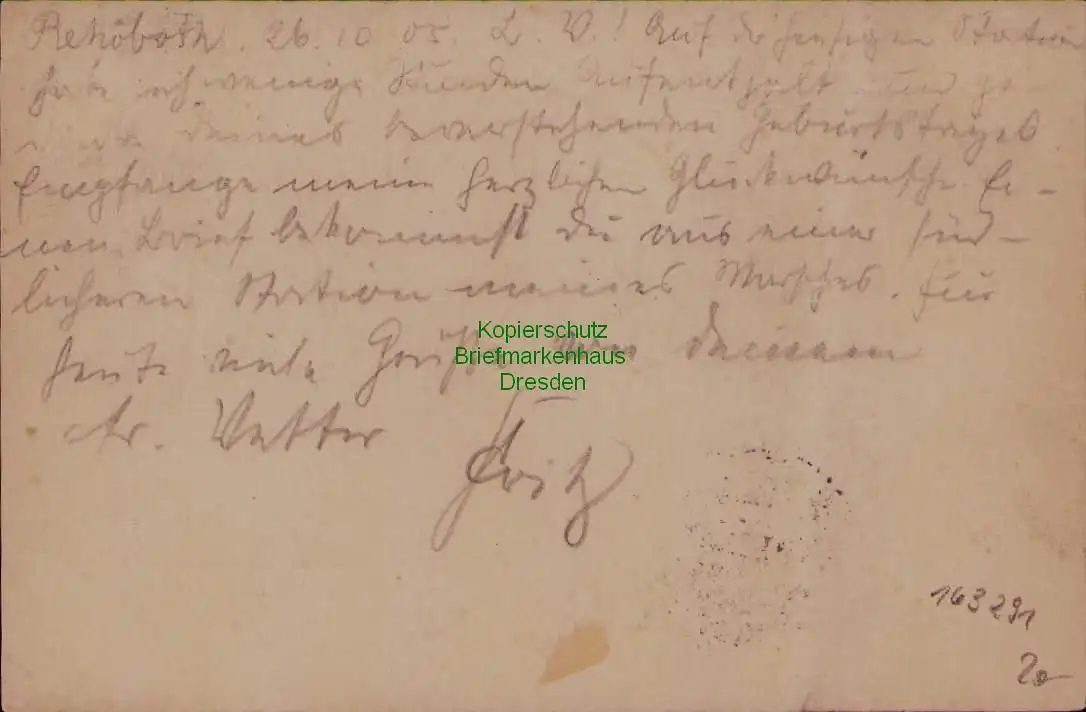 Rehoboth. 26.10.05. L. V.! Auf der hiesigen Station
habe ich wenige Stunden Aufenthalt und
deines bevorstehenden Geburtstages
Empfange meine herzlichen Glückwünsche. Ei-
nen Brief bekommst du aus einer süd-
licheren Station meines Marsches. Für
heute viele Grüße von Deinem
tr. Vetter
Fritz
Kopierschutz
Briefmarkenhaus
Dresden
163291
20